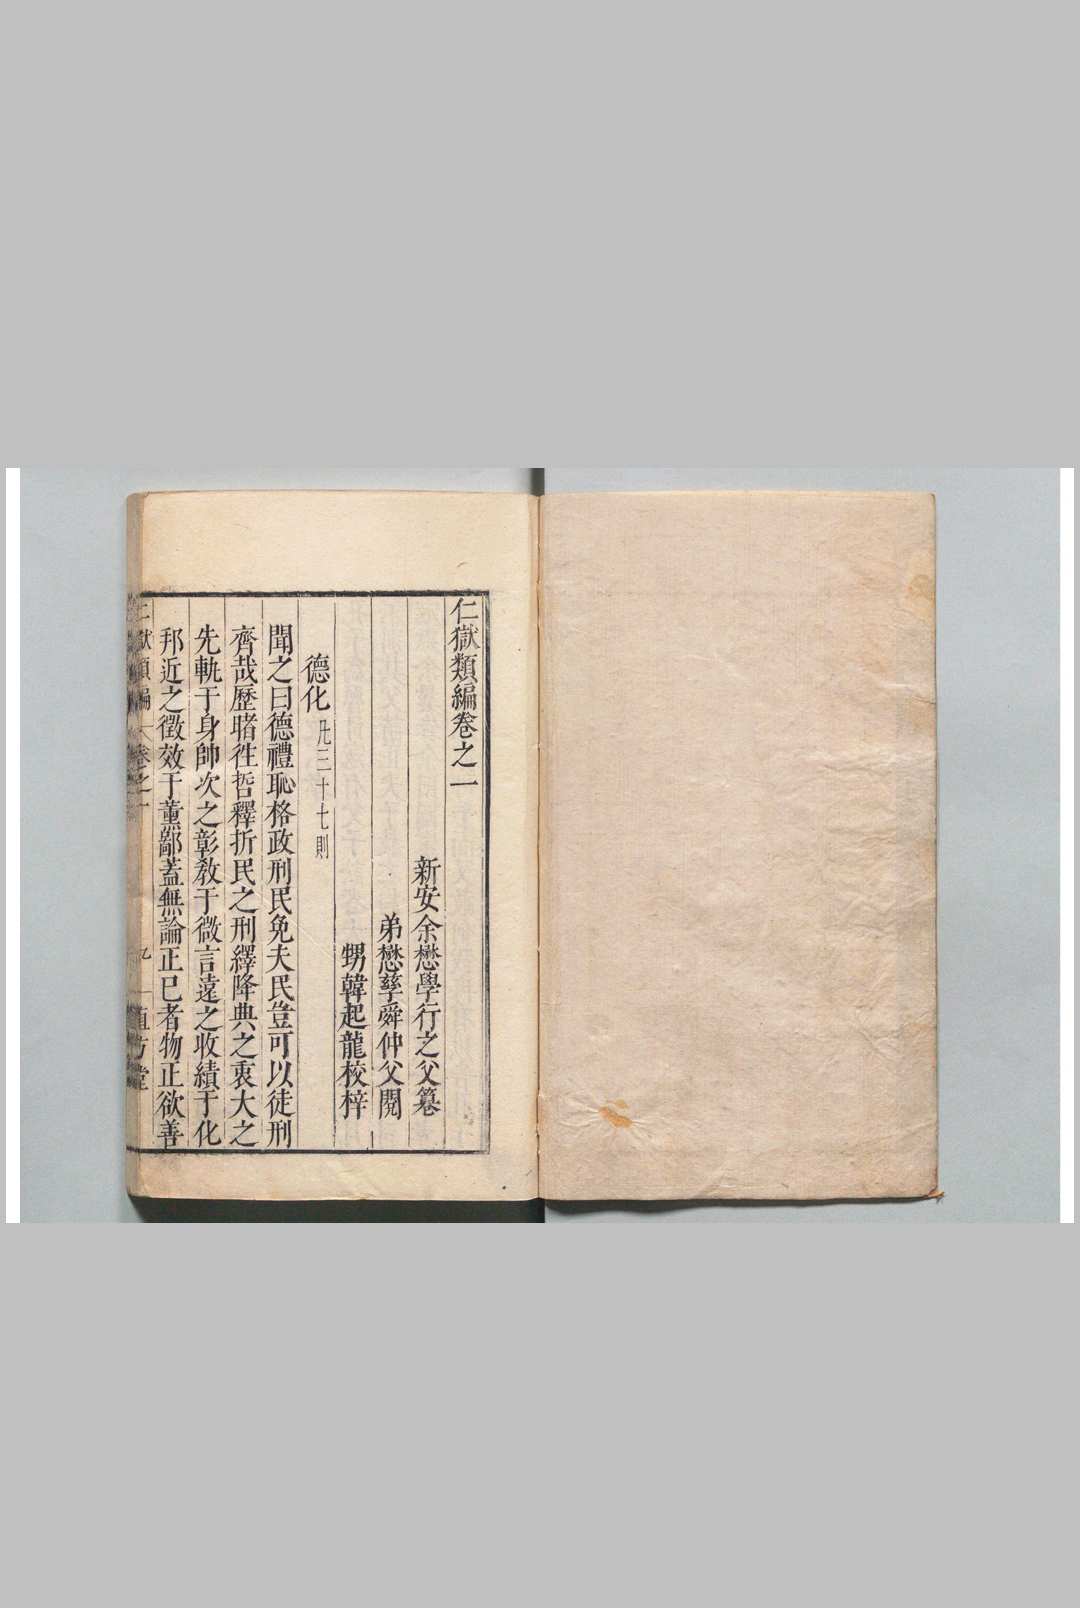 仁獄類編卷之一
新安余懋學行之父篹
弟懋孳舜仲父閱
甥韓起龍校梓
德化 凡三十七則
聞之曰德禮恥格政刑民免夫民豈可以徒刑
齊哉歷睹徃哲釋折民之刑繹降典之衷大之
先軌于身帥次之彰敎于微言遠之收績于化
邦近之徵效于薰鄰蓋無論正已者物正欲善
仁獄類編 卷之一 九 直方堂